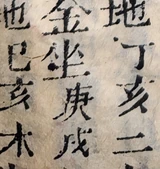 地丁亥二
金坐庚戌
地巳亥木